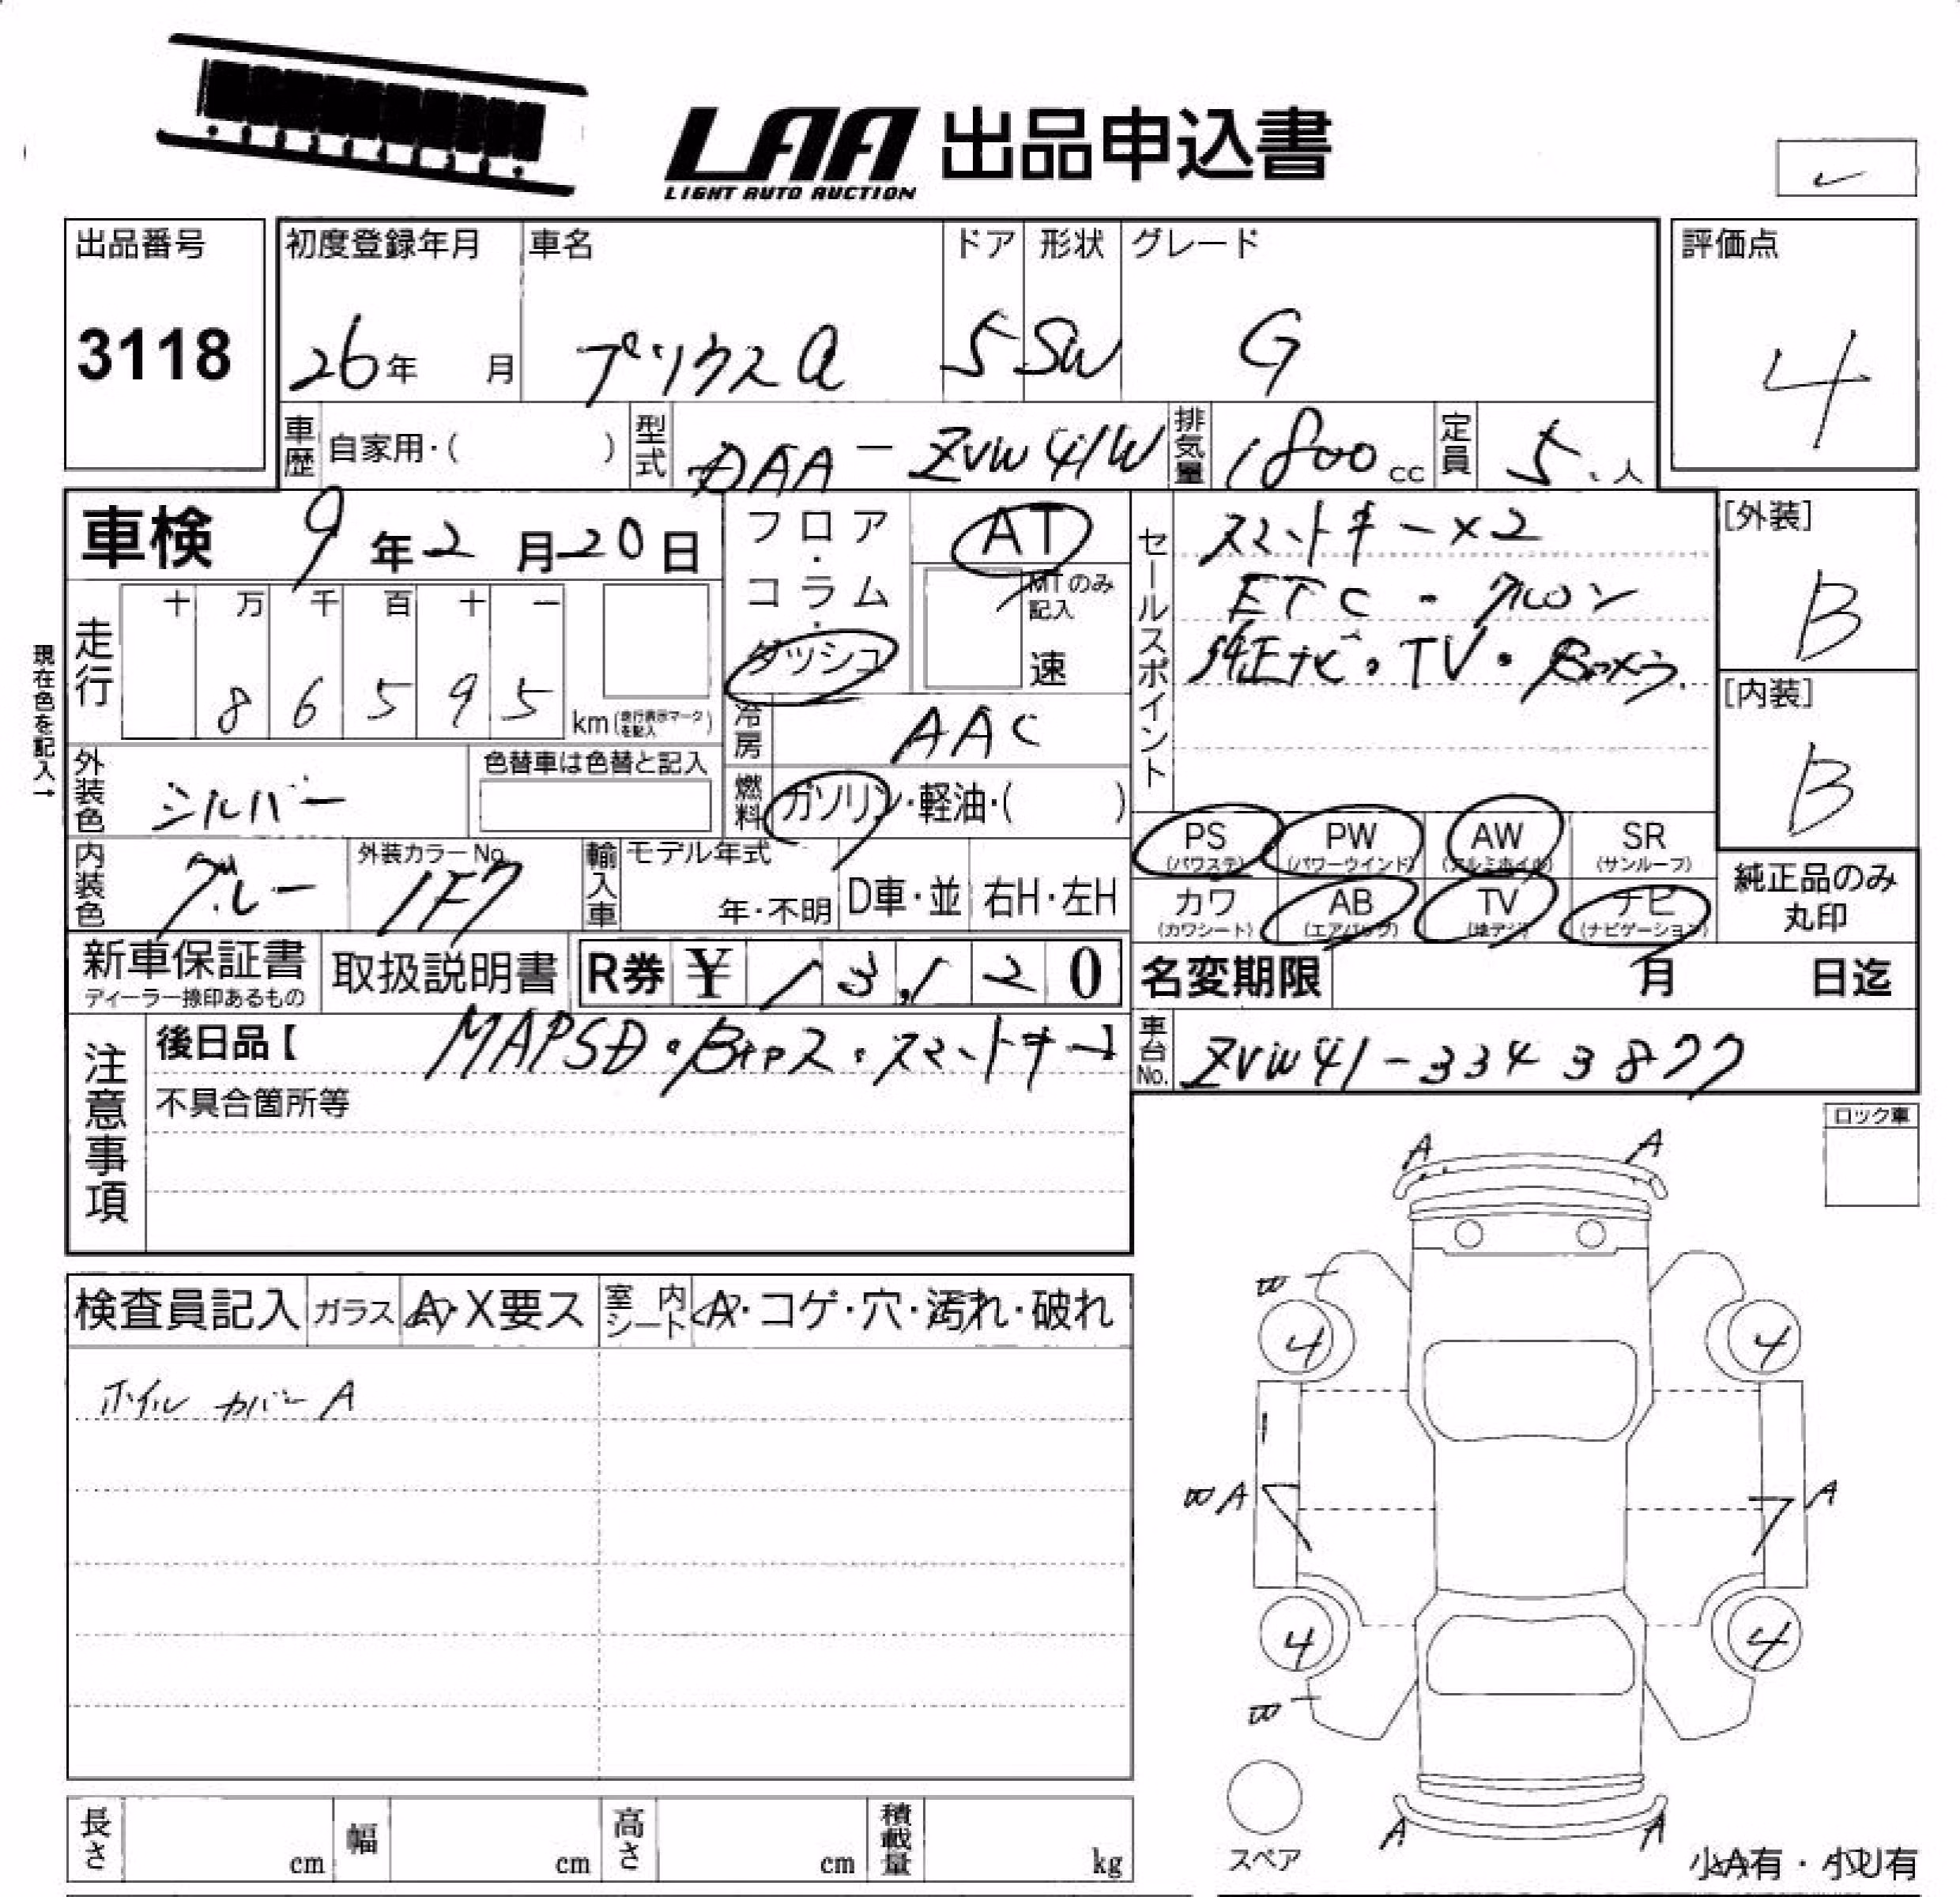 LAA 出品申込書
LIGHT AUTO AUCTION
出品番号 初度登録年月 車名 ドア 形状 グレード 評価点
3118 26年 月 プリウスα 5 SW G 4
車歴 自家用・( ) 型式 DAA-ZVW41W 排気量 1800cc 定員 5人
車検 9年2月20日 フロア・コラム・ダッシュ AT セールスポイント スマートキー×2 [外装]
MTのみ記入 速 ETC・
B
現在色を記入→ 走行 十 万 千 百 十 一 純正ナビ・TV・
8 6 5 9 5 km (走行表示マークを記入) 冷房 AAC [内装]
B
外装色 シルバー 色替車は色替と記入 燃料 ガソリン・軽油・( )
PS (パワステ) PW (パワーウインド) AW (アルミホイル) SR (サンルーフ)
内装色 グレー 外装カラーNo. 1F7 輸入車 モデル年式 年・不明 D車・並 右H・左H
カワ (カワシート) AB (エアバッグ) TV (地デジ) ナビ (ナビゲーション) 純正品のみ丸印
新車保証書 ディーラー捺印あるもの 取扱説明書 R券 ¥ 13,120 名変期限 月 日迄
注意事項 後日品【 MAPSD・ ・スマートキー】 車台No. ZVW41-3343877
不具合箇所等 ロック車
A A
検査員記入 ガラス A・X要ス 室内シート A・コゲ・穴・汚れ・破れ
4 4
ホイルカバーA
A A
4 4
スペア
A A
長さ cm 幅 cm 高さ cm 積載量 kg
小A有・小U有